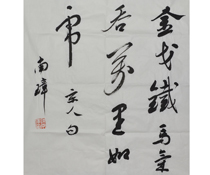 金戈鐵馬氣
吞萬里如
虎
宋人句
南璋